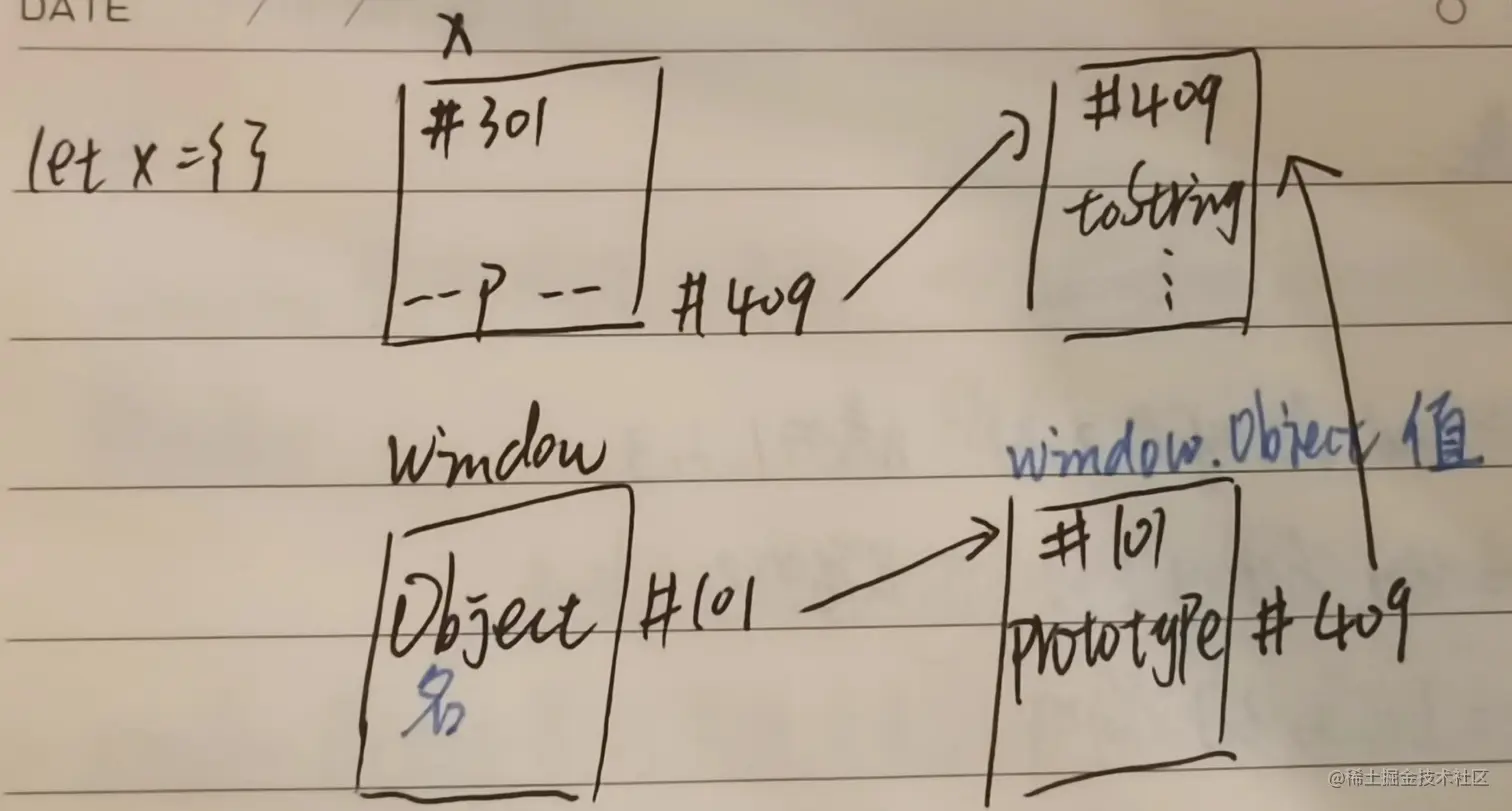 DATE / /
x
let x={}
#301
--P--
#409
#409
toString
⋮
window
Object
名
#101
window.Object 值
#101
prototype
#409
@稀土掘金技术社区